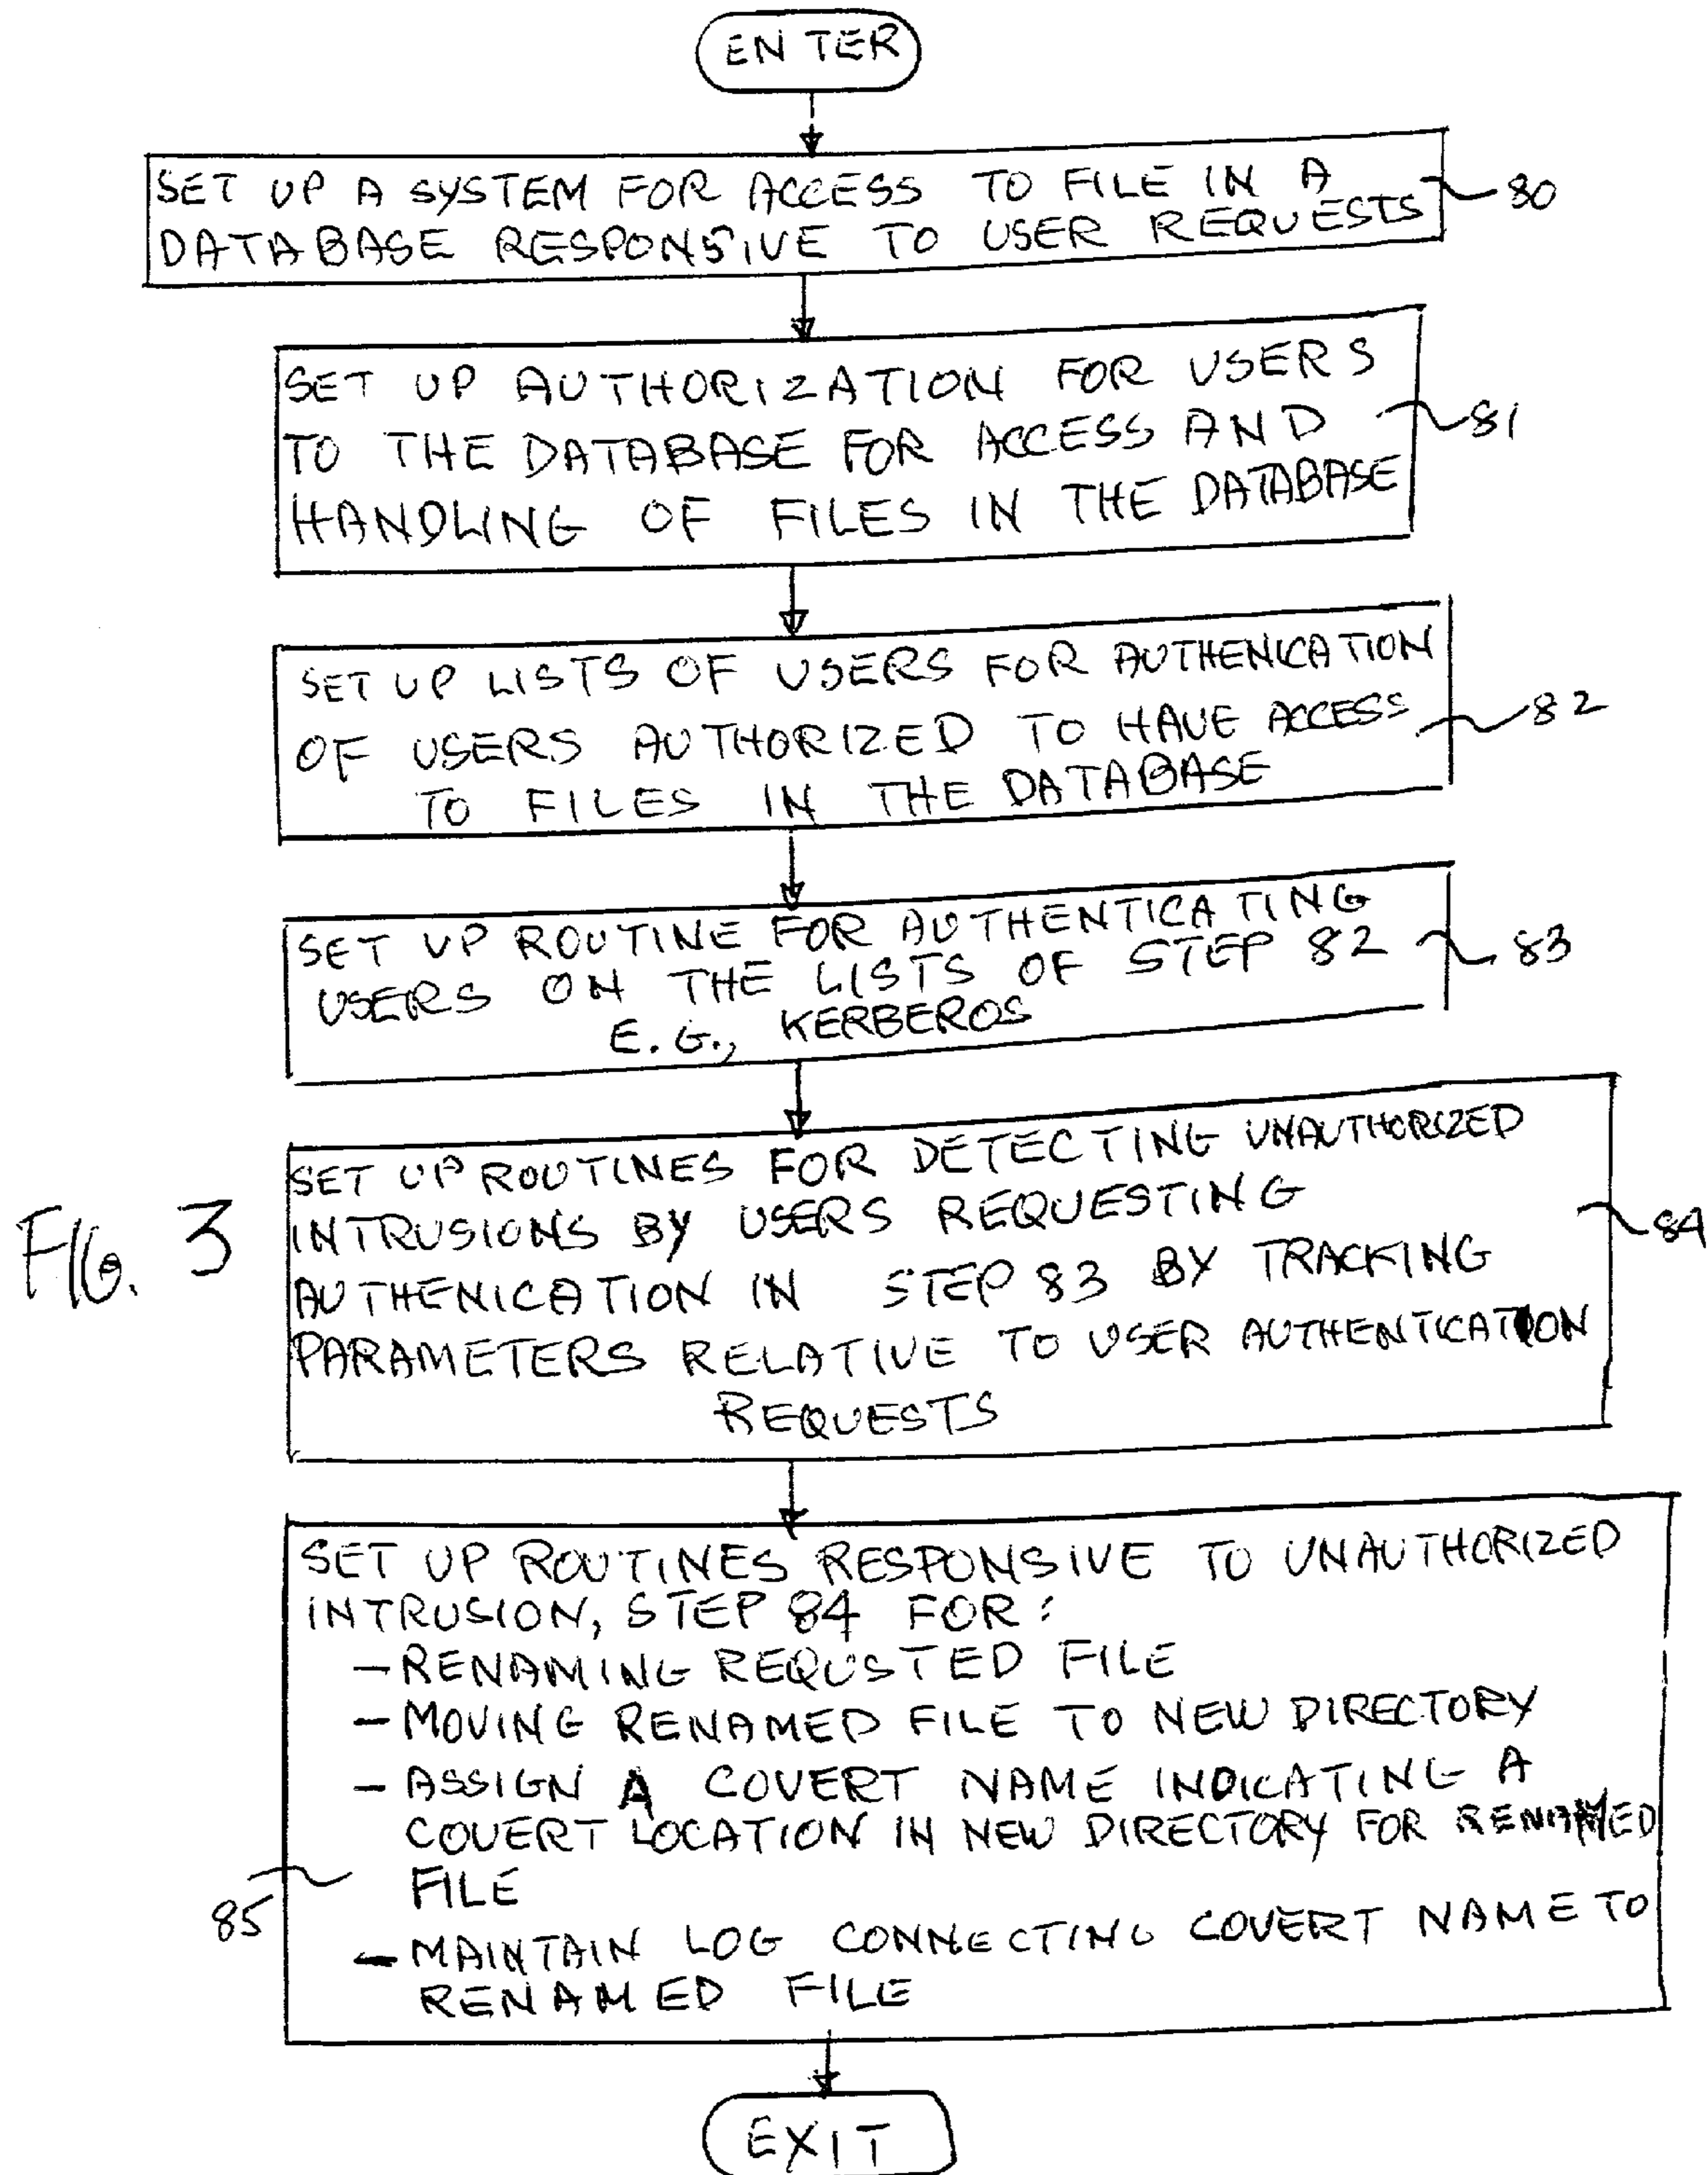 ENTER
SET UP A SYSTEM FOR ACCESS TO FILE IN A
DATABASE RESPONSIVE TO USER REQUESTS
80
SET UP AUTHORIZATION FOR USERS
TO THE DATABASE FOR ACCESS AND
HANDLING OF FILES IN THE DATABASE
81
SET UP LISTS OF USERS FOR AUTHENICATION
OF USERS AUTHORIZED TO HAVE ACCESS
TO FILES IN THE DATABASE
82
SET UP ROUTINE FOR AUTHENTICATING
USERS ON THE LISTS OF STEP 82
E.G., KERBEROS
83
FIG. 3
SET UP ROUTINES FOR DETECTING UNAUTHORIZED
INTRUSIONS BY USERS REQUESTING
AUTHENICATION IN STEP 83 BY TRACKING
PARAMETERS RELATIVE TO USER AUTHENTICATION
REQUESTS
84
SET UP ROUTINES RESPONSIVE TO UNAUTHORIZED
INTRUSION, STEP 84 FOR:
- RENAMING REQUSTED FILE
- MOVING RENAMED FILE TO NEW DIRECTORY
- ASSIGN A COVERT NAME INDICATING A
COVERT LOCATION IN NEW DIRECTORY FOR RENAMED
FILE
85
- MAINTAIN LOG CONNECTING COVERT NAME TO
RENAMED FILE
EXIT